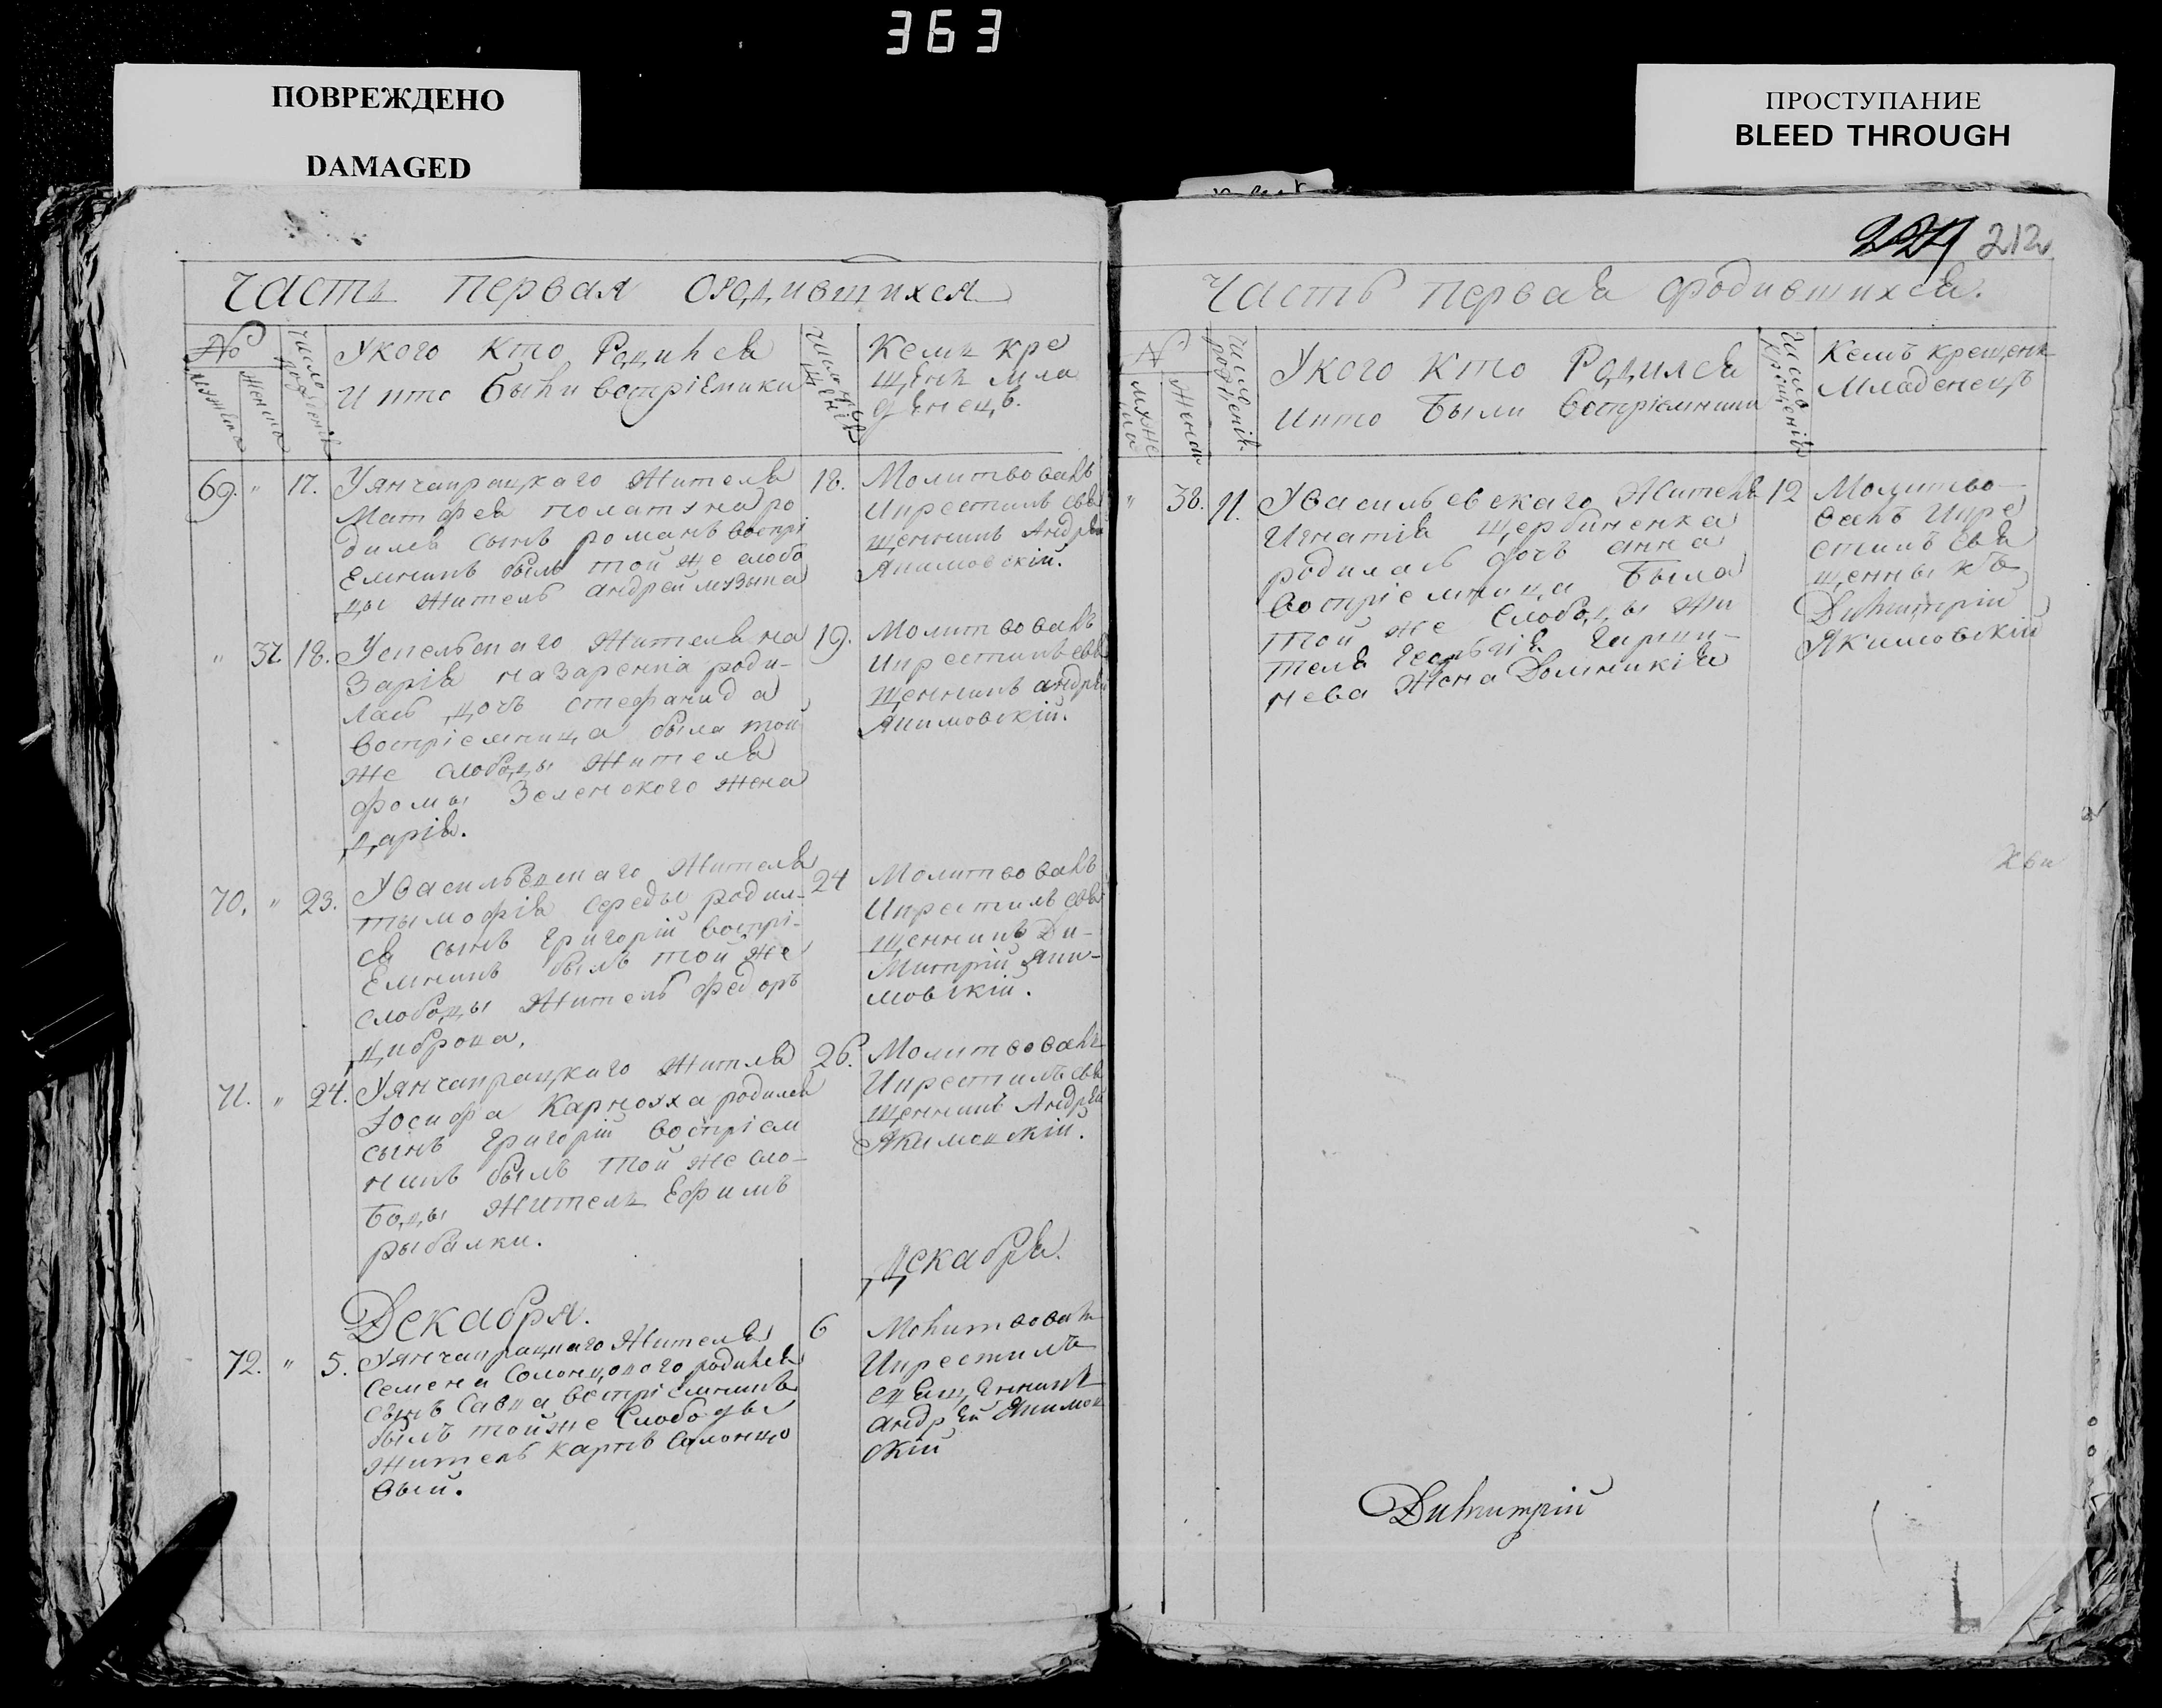 363
ПОВРЕЖДЕНО
DAMAGED
ПРОСТУПАНИЕ
BLEED THROUGH
Часть первая ородившихся
№
мужеска
женска
число рожденій
Укого кто Родился
и кто были восприемники
число крещеній
Кемъ кре
щенъ мла
денецъ.
69. " 17.
Уянчакрацкаго жителя
Матфея
родился сынъ романъ воспрі
емникъ былъ той же слобо
ды житель андрей музыка
18.
Молитвовалъ
икрестилъ свя
щенникъ Андрей
Якимовскій.
" 37. 18.
жителя на
зарія назаренка роди-
лась дочь стефанида
воспріемница была той
же слободы жителя
фомы Зеленского жена
дарія.
19.
Молитвовалъ
икрестилъ свя
щенникъ андрей
Якимовскій.
70. " 23.
Увасильевскаго жителя
тымофія середы родил-
ся сынъ григорій воспрі-
емникъ былъ той же
слободы житель федоръ
24
Молитвовалъ
икрестилъ свя
щенникъ Ди-
митрій Яки-
мовскій.
71. " 24.
Уянчакрацкаго жителя
Іосифа Карноуха родился
сынъ григорій воспріем
никъ былъ той же сло-
боды житель Ефимъ
рыбалки.
26.
Молитвовалъ
икрестилъ свя
щенникъ Андрей
Якимовскій.
Декабря.
Декабря.
72. " 5.
Уянчакрацкаго жителя
семена Солонцового родился
сынъ Савка воспріемникъ
былъ тойже Слободы
житель карпъ Солонцо
вый.
6
Молитвовалъ
икрестилъ
священникъ
андрей Якимов
скій
212
Часть первая ородившихся.
№
мужеска
женска
число рожденій
Укого кто Родился
икто были воспріемники
Число крещенія
Кемъ крещенъ
Младенецъ
" 38. 11.
Увасильевскаго жителя
игнатія щербиненка
родилась дочь анна
воспріемница была
той же слободы жи
теля
нева жена Домникія
12
Молитво-
валъ икре
стилъ свя
щенникъ
Димитрій
Якимовскій
Димитрій